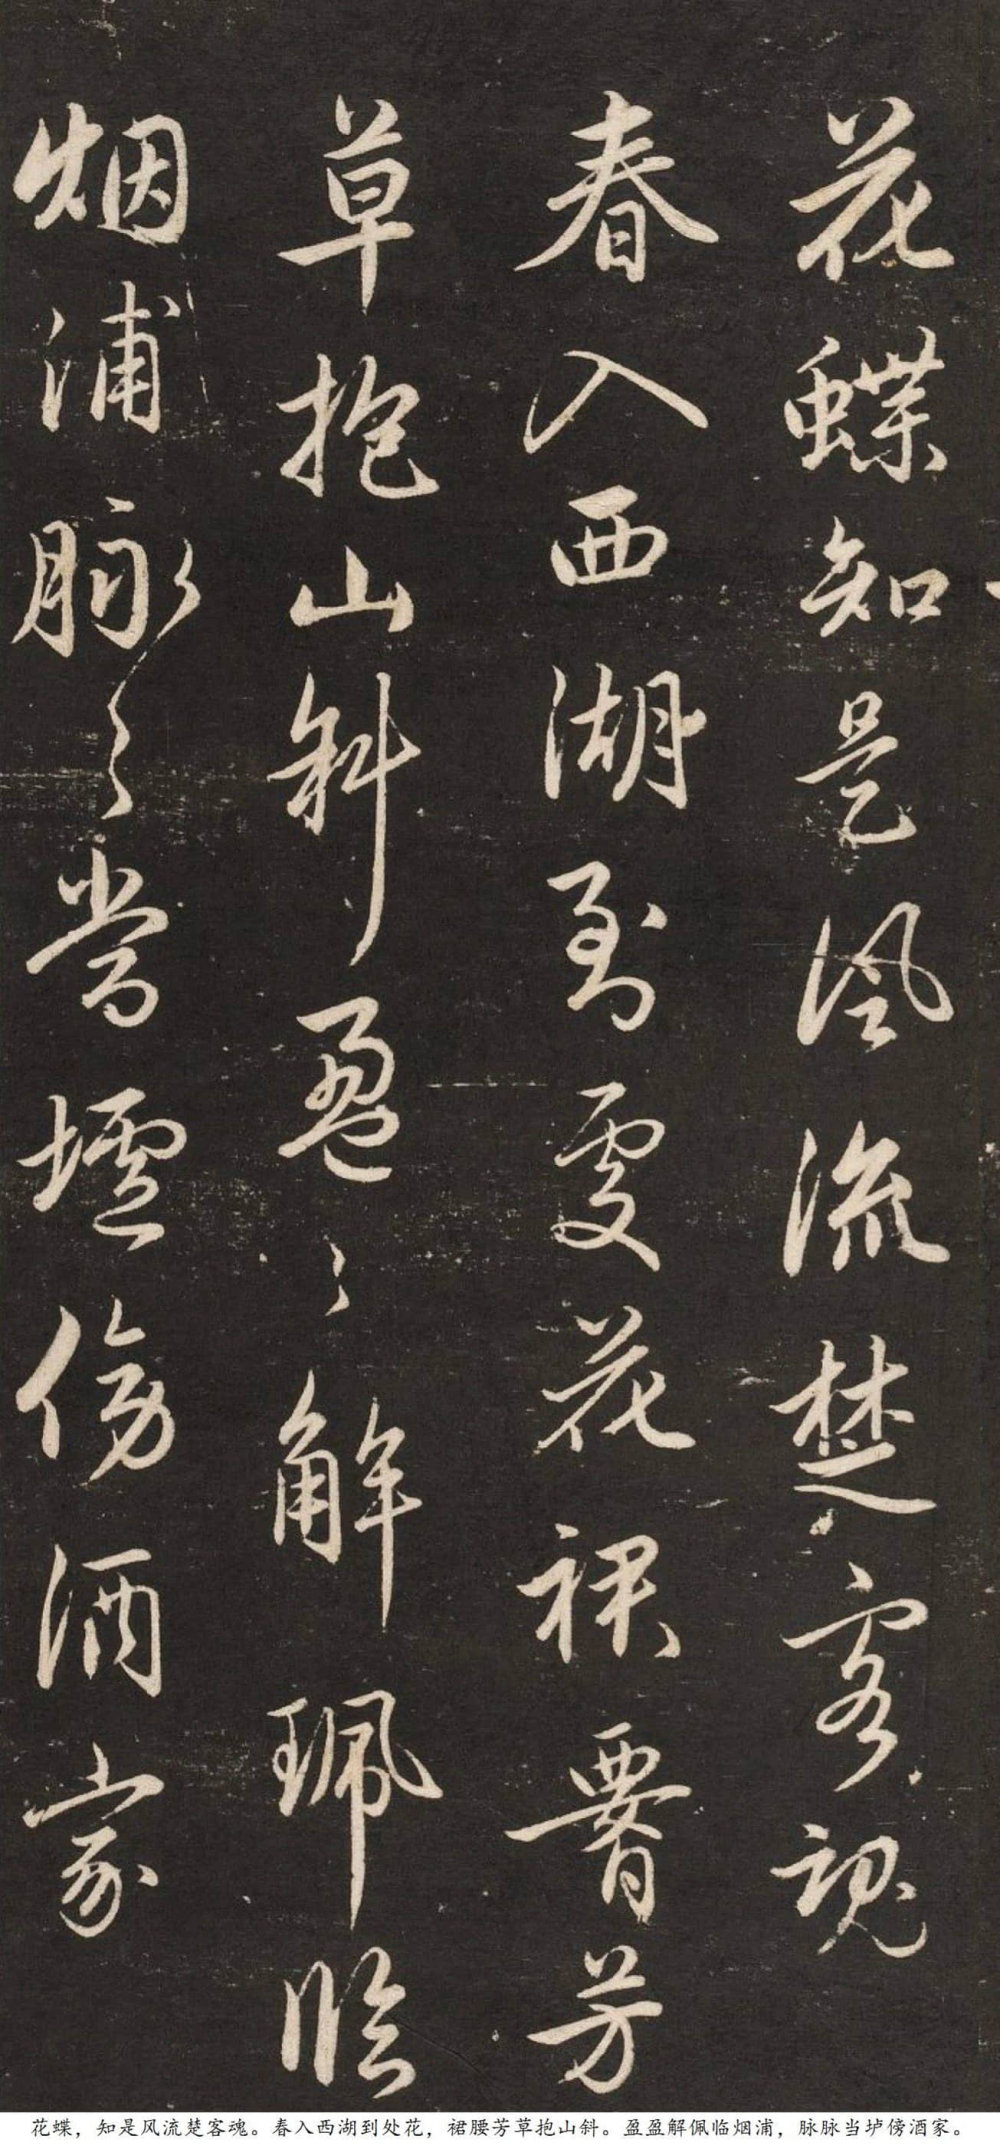 花蝶知是風流楚客魂
春入西湖到處花裙腰芳
草抱山斜盈〻解珮臨
烟浦脉〻當壚傍酒家
花蝶，知是风流楚客魂。春入西湖到处花，裙腰芳草抱山斜。盈盈解佩临烟浦，脉脉当垆傍酒家。